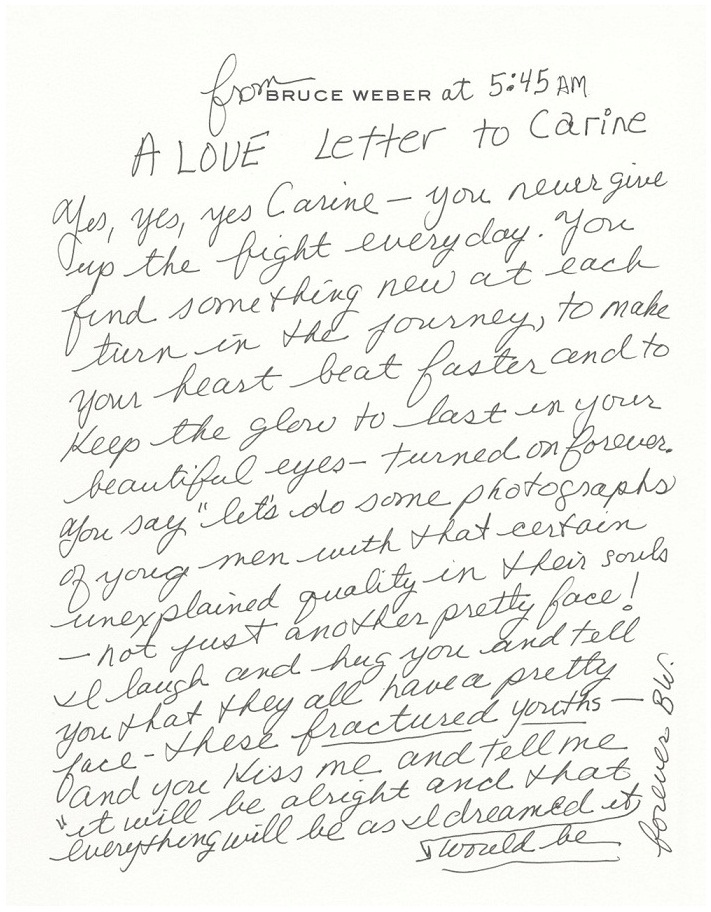 from BRUCE WEBER at 5:45 AM
A LOVE Letter to Carine
Yes, yes, yes Carine — you never give
up the fight everyday. You
find something new at each
turn in the journey, to make
your heart beat faster and to
Keep the glow to last in your
beautiful eyes — turned on forever.
You say "let's do some photographs
of youg men with that certain
unexplained quality in their souls
— not just another pretty face!
I laugh and hug you and tell
you that they all have a pretty
face - these fractured youths —
and you kiss me and tell me
"it will be alright and that
everything will be as I dreamed it
would be
forever BW.